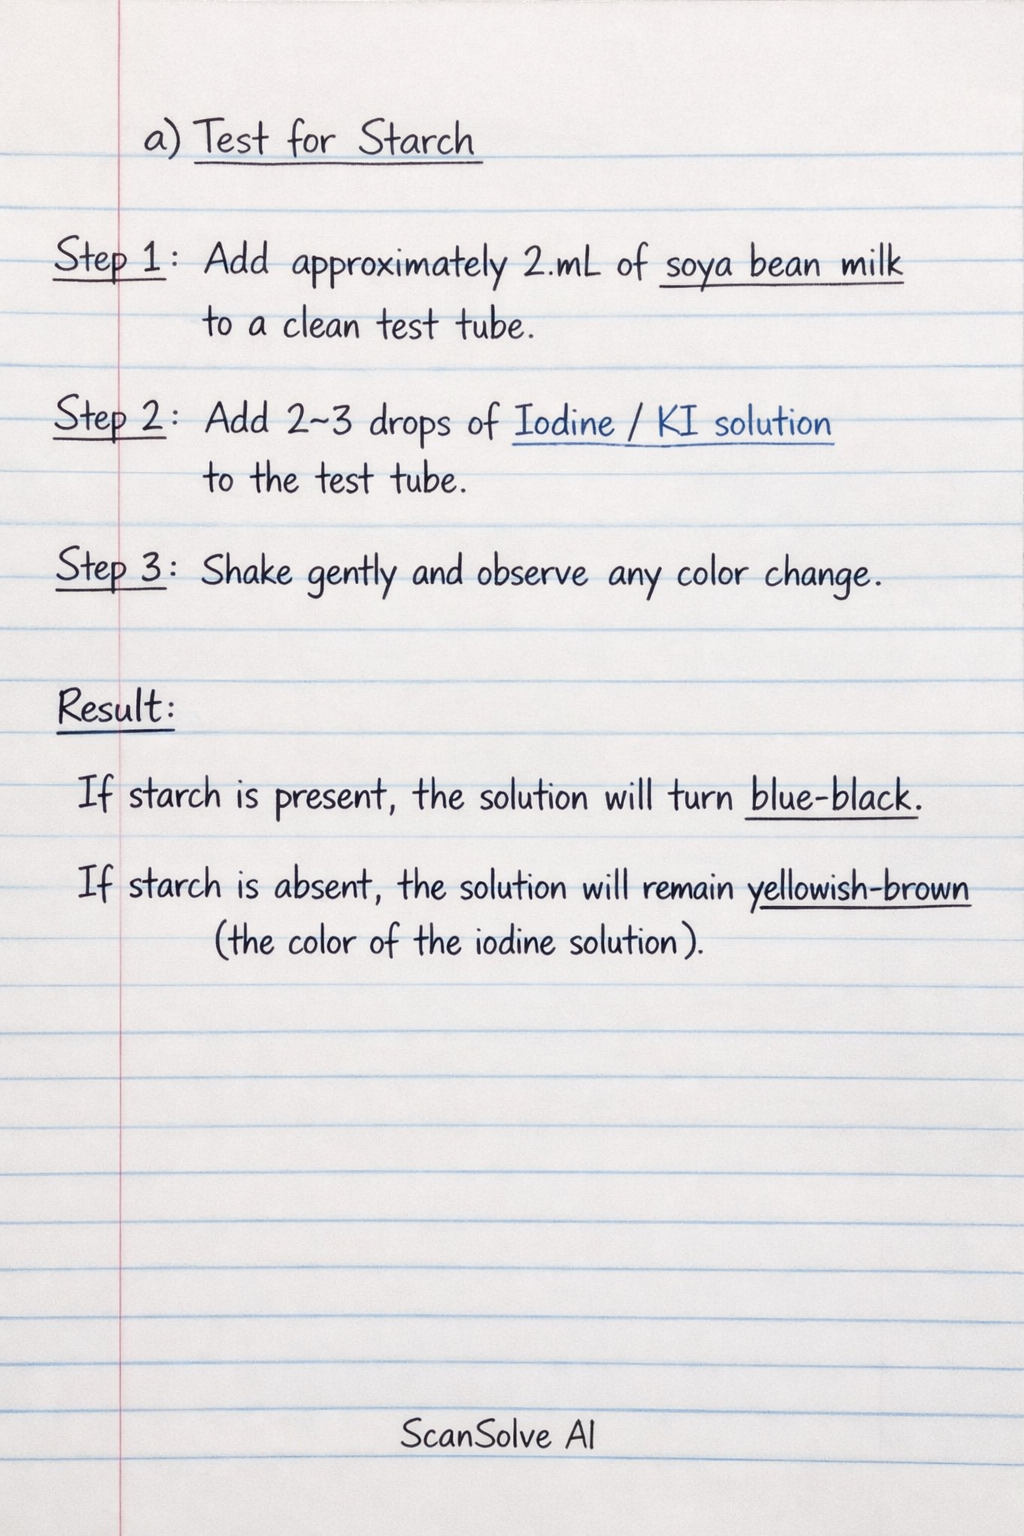 a) Test for Starch
Step 1: Add approximately 2.mL of soya bean milk
to a clean test tube.
Step 2: Add 2~3 drops of Iodine / KI solution
to the test tube.
Step 3: Shake gently and observe any color change.
Result:
If starch is present, the solution will turn blue-black.
If starch is absent, the solution will remain yellowish-brown
(the color of the iodine solution).
ScanSolve AI